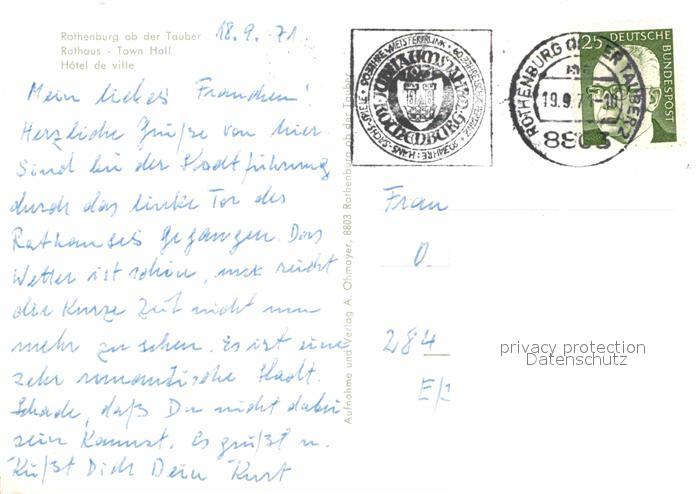 Rothenburg ob der Tauber
Rathaus - Town Hall
Hôtel de ville
18.9.71
Mein liebes Frauchen!
Herzliche Grüße von hier.
Sind bei der Stadtführung
durch das linke Tor des
Rathauses gegangen. Das
Wetter ist schön, nur reicht
die Kurze Zeit nicht um
mehr zu sehen. Es ist eine
sehr romantische Stadt.
Schade, daß Du nicht dabei
sein Kannst. Es grüßt u.
Küßt Dich Dein Kurt
Aufnahme und Verlag A. Ohmayer, 8803 Rothenburg ob der Tauber
60 JAHRE MEISTERTRUNK
60 JAHRE HANS-SACHS-SPIELE
ROTHENBURG
ROTHENBURG OB DER TAUBER 2
19.9.71
8803
25 DEUTSCHE
BUNDESPOST
Frau
O
284
privacy protection
Datenschutz